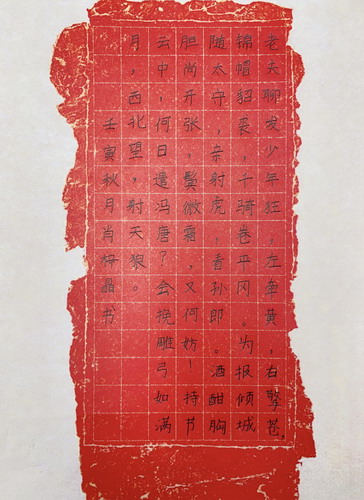 老夫聊发少年狂，左牵黄，右擎苍，
锦帽貂裘，千骑卷平冈。为报倾城
随太守，亲射虎，看孙郎。酒酣胸
胆尚开张，鬓微霜，又何妨！持节
云中，何日遣冯唐？会挽雕弓如满
月，西北望，射天狼。
壬寅秋月肖晶书